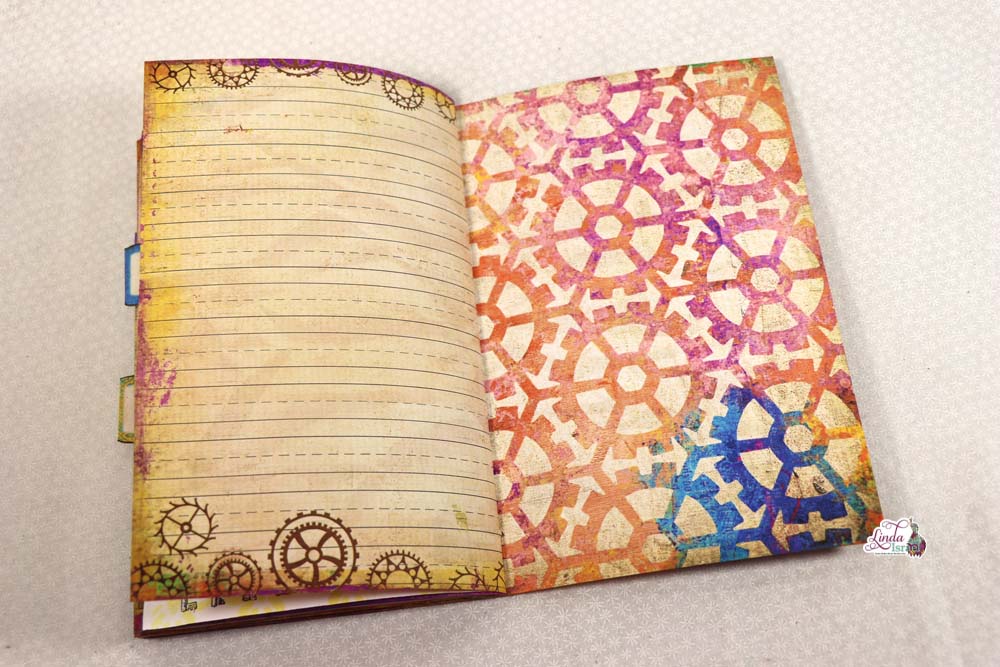 Linda
Israel